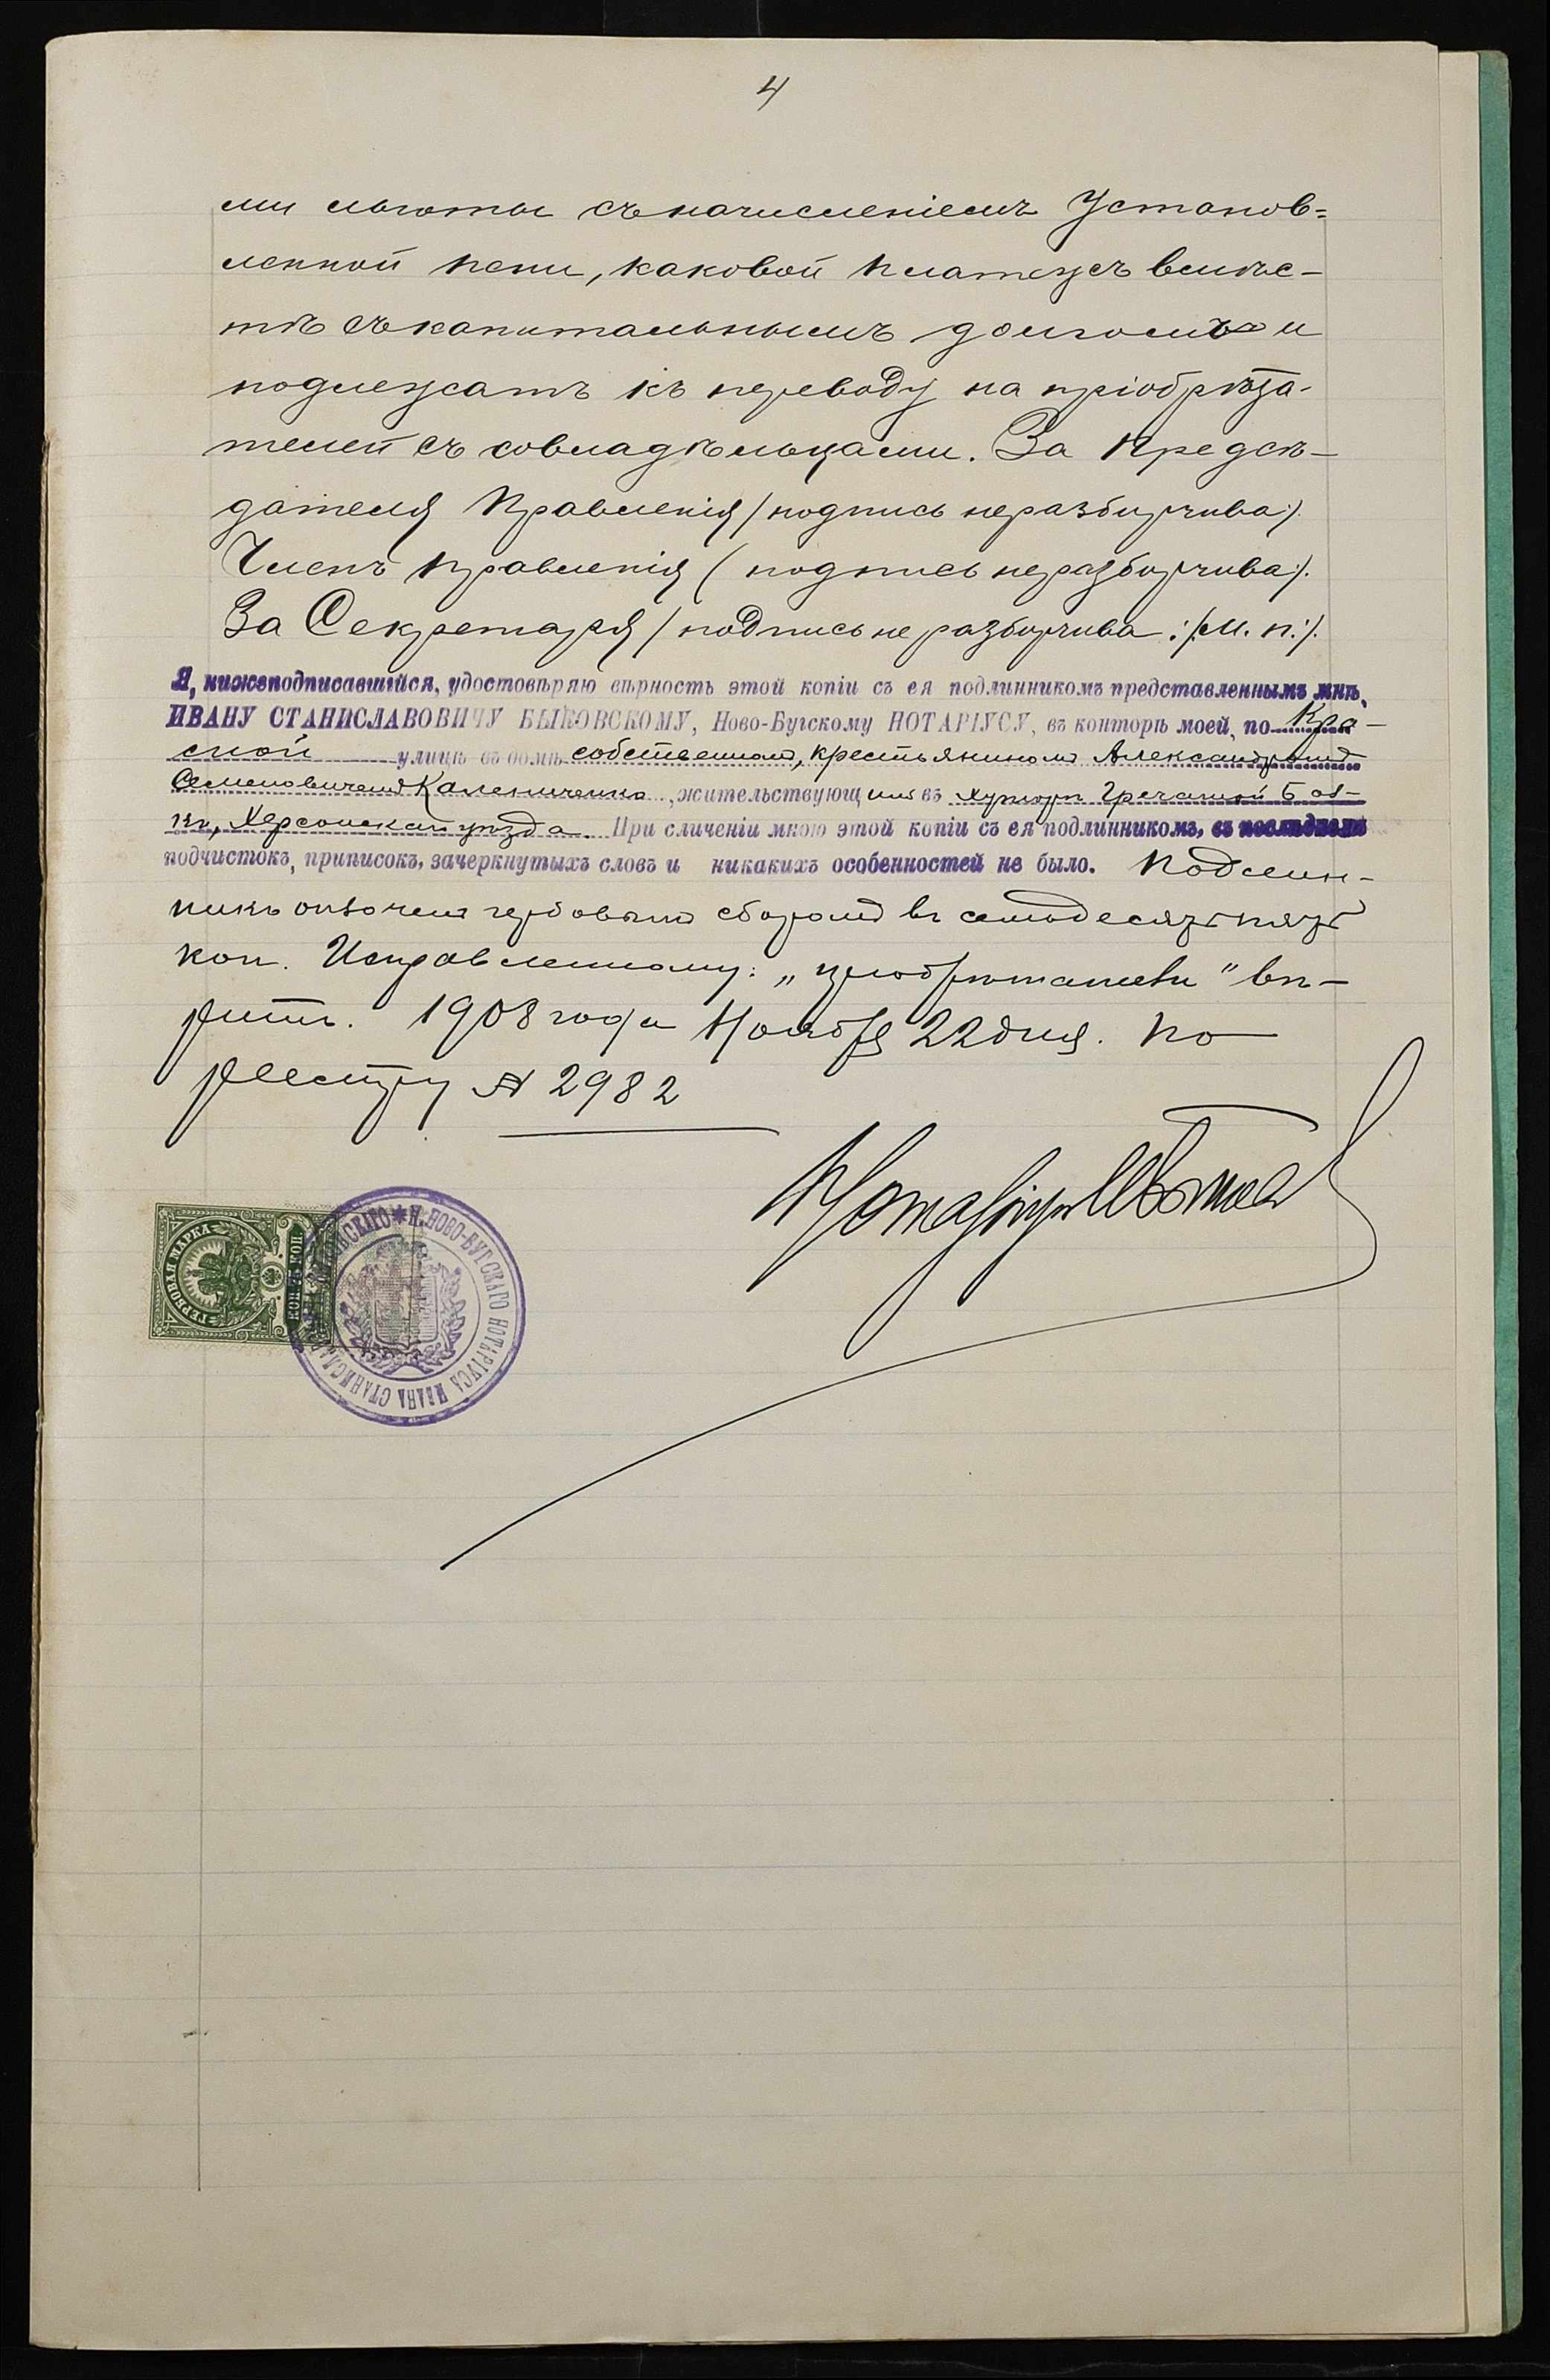 4
ми льготы съ начисленіемъ Установ=
ленной пени, каковой платежъ вмѣс-
тѣ съ капитальнымъ долгомъ и
подлежатъ къ переводу на пріобрѣта-
телей съ совладѣльцами. За Предсѣ-
дателя Правленія /подпись неразбирчива/.
Членъ правленія (подпись неразбирчива/.
За Секретаря /подпись не разбирчива:/.М. п:/.
Я, нижеподписавшійся, удостовѣряю вѣрность этой копіи съ ея подлинникомъ представленнымъ мнѣ,
ИВАНУ СТАНИСЛАВОВИЧУ БЫКОВСКОМУ, Ново-Бугскому НОТАРІУСУ, въ конторѣ моей, по Кра-
сной улицѣ въ домѣ собственномъ, крестьяниномъ Александромъ
Семеновичемъ Калениченко, жительствующимъ въ хуторѣ Гречаной
Херсонскаго уѣзда. При сличеніи мною этой копіи съ ея подлинникомъ, въ послѣднемъ
подчистокъ, приписокъ, зачеркнутыхъ словъ и никакихъ особенностей не было. Подлин-
никъ оплоченъ гербовымъ сборомъ въ семьдесятъ пять
коп. Исправленному: „ " вѣ-
рить. 1908 года Ноября 22 дня. По
реестру № 2982
Нотаріусъ
ГЕРБОВАЯ МАРКА
КОП. 75 КОП.
Н. НОВО-БУГСКАГО НОТАРІУСА ИВАНА СТАНИСЛАВОВИЧА БЫКОВСКАГО